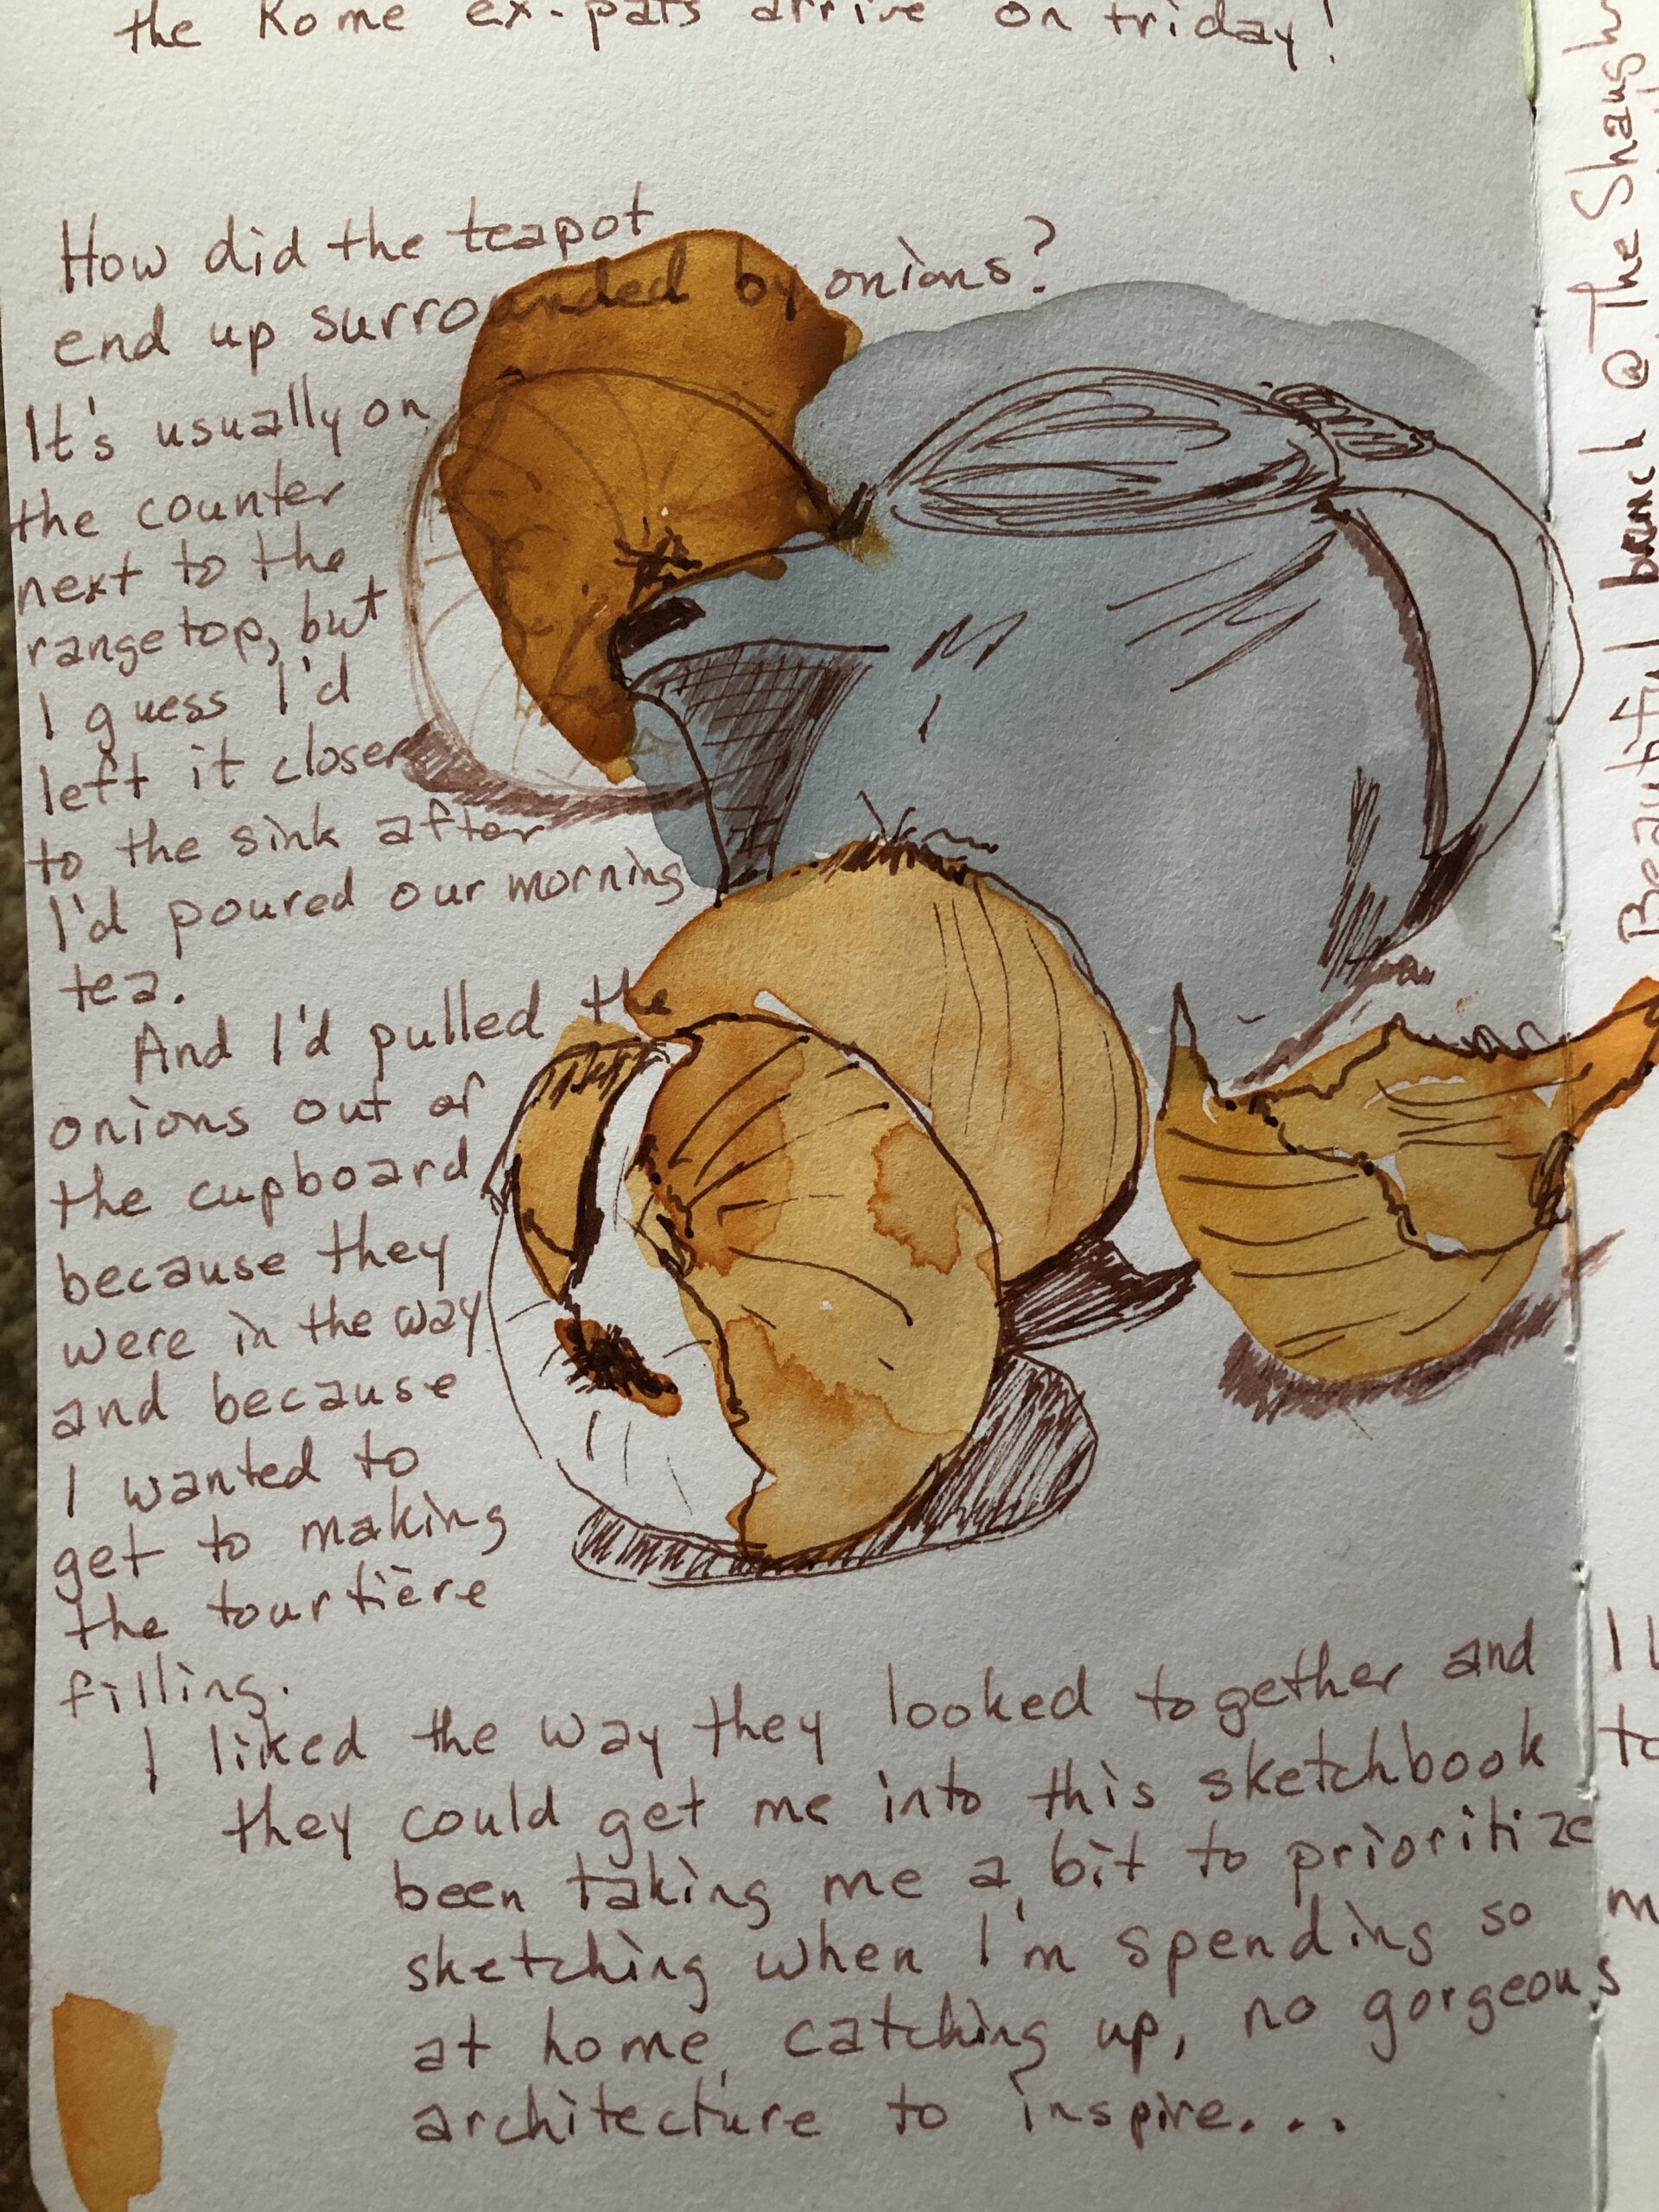 the Rome ex-pats arrive on Friday!
How did the teapot
end up surrounded by onions?
It's usually on
the counter
next to the
rangetop, but
I guess I'd
left it closer
to the sink after
I'd poured our morning
tea.
And I'd pulled the
onions out of
the cupboard
because they
were in the way
and because
I wanted to
get to making
the tourtière
filling.
I liked the way they looked together and
they could get me into this sketchbook
been taking me a bit to prioritize
sketching when I'm spending so
at home, catching up, no gorgeous
architecture to inspire...
Beautiful brunch @ The